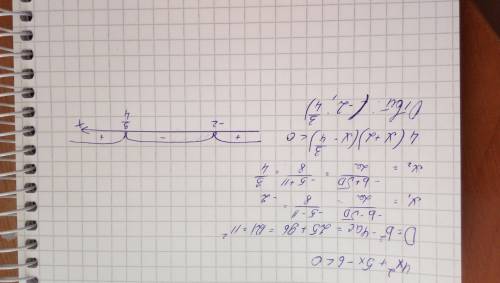 4x² + 5x - 6 < 0
D = b² - 4ac = 25 + 96 = 121 = 11²
x₁ = (-b - √D)/2a = (-5 - 11)/8 = -2
x₂ = (-b + √D)/2a = (-5 + 11)/8 = 3/4
4(x + 2)(x - 3/4) < 0
+ - +
-2 3/4 x
Ответ: (-2; 3/4)